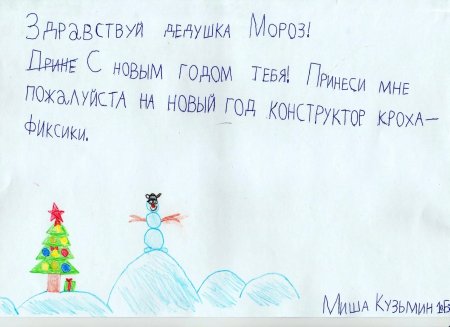 Здравствуй дедушка Мороз!
Прине С новым годом тебя! Принеси мне
пожалуйста на новый год конструктор кроха-
фиксики.
Миша Кузьмин 1Б